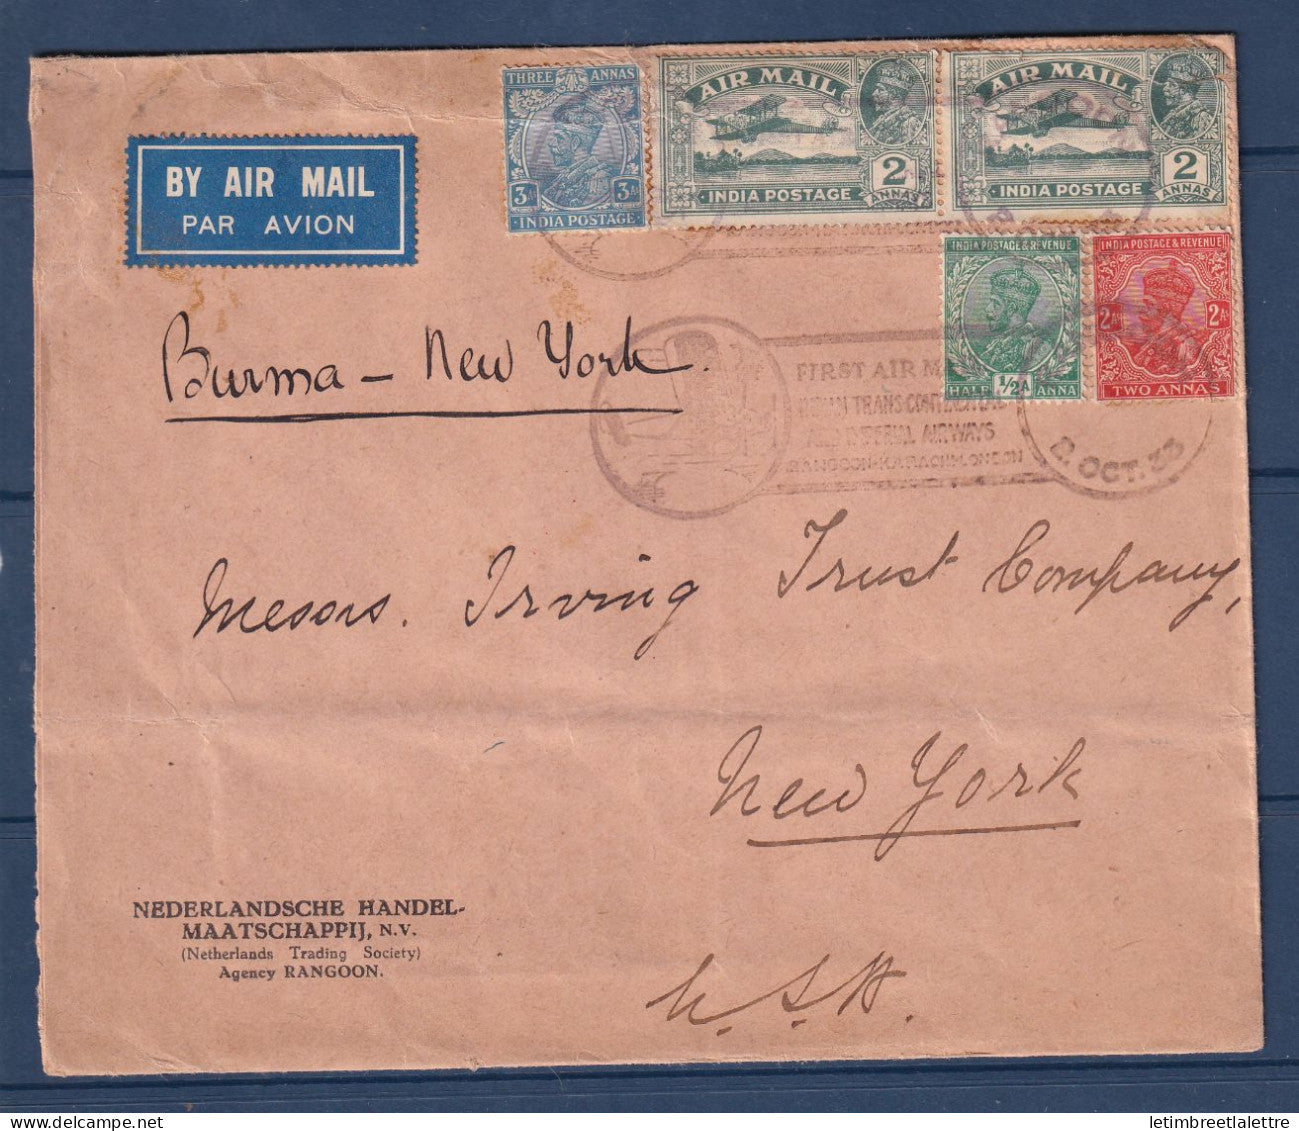 THREE ANNAS
3A 3A
INDIA POSTAGE
AIR MAIL
2
ANNAS
INDIA POSTAGE
AIR MAIL
2
ANNAS
INDIA POSTAGE
BY AIR MAIL
PAR AVION
INDIA POSTAGE & REVENUE
HALF 1/2A ANNA
INDIA POSTAGE & REVENUE
2As 2As
TWO ANNAS
Burma - New York.
FIRST AIR
TRANS-CONTINENTAL
AND IMPERIAL AIRWAYS
RANGOON-KARACHI-LONDON
OCT. 33
Messrs. Irving Trust Company,
New York
U.S.A.
NEDERLANDSCHE HANDEL-
MAATSCHAPPIJ, N.V.
(Netherlands Trading Society)
Agency RANGOON.
letimbreetlalettre